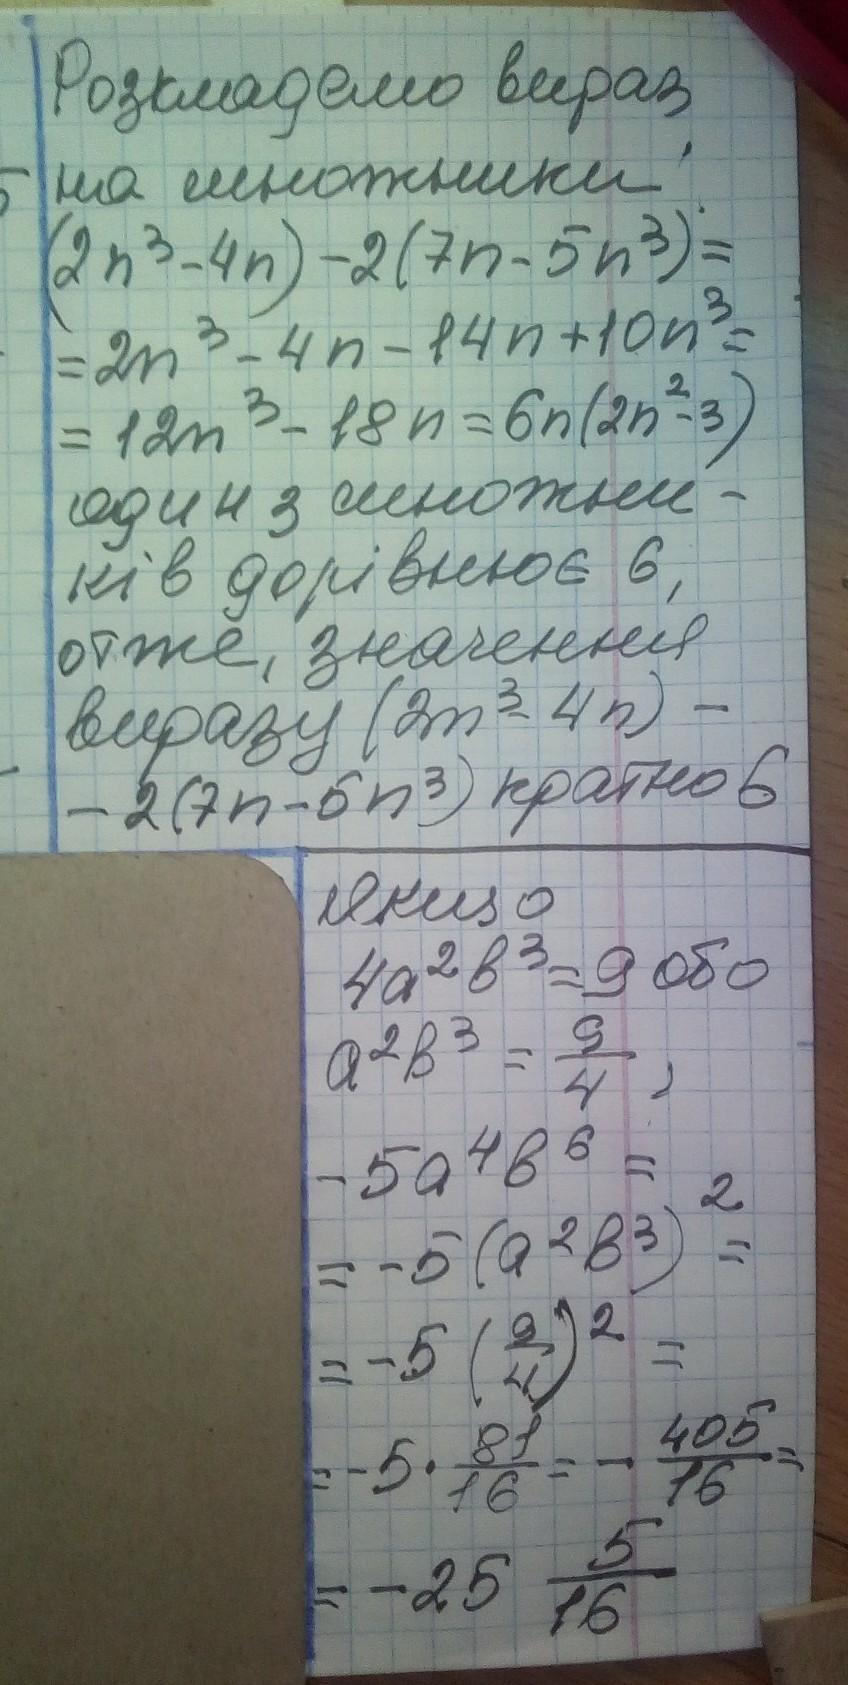 Розкладемо вираз
на множники:
(2n³-4n)-2(7n-5n³)=
=2n³-4n-14n+10n³=
=12n³-18n=6n(2n²-3)
один з множни-
ків дорівнює 6,
отже, значення
виразу (2n³-4n)-
-2(7n-5n³) кратно 6
Якщо
4a²b³=9 або
a²b³ = 9/4,
-5a⁴b⁶ =
= -5(a²b³)² =
= -5(9/4)² =
= -5·81/16 = -405/16 =
= -25 5/16